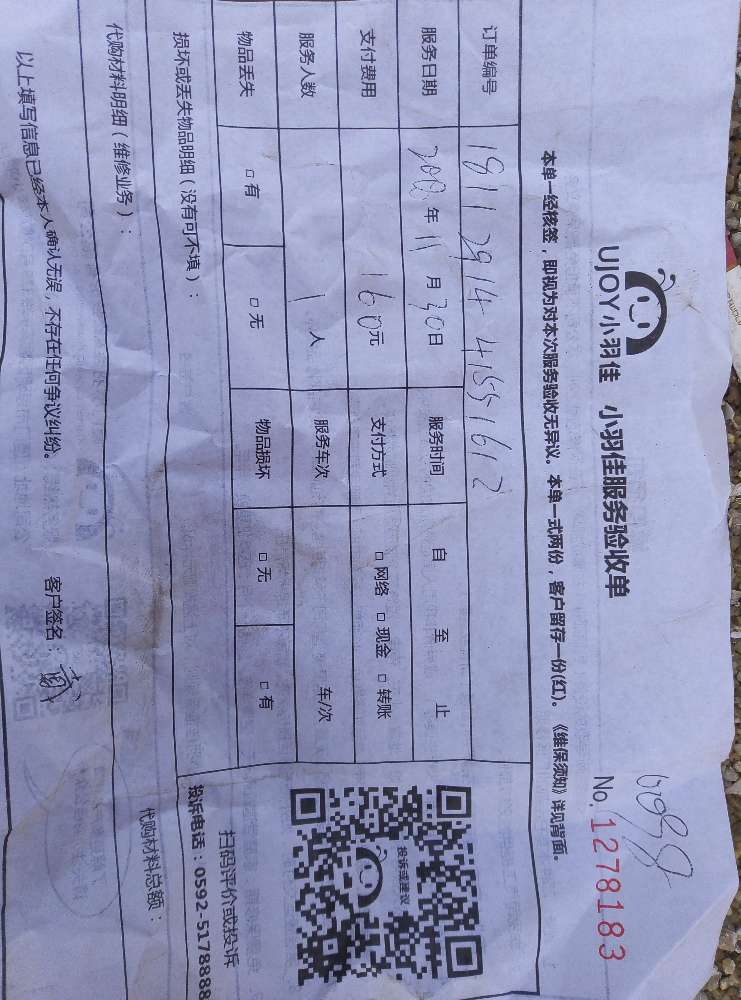 UJOY小羽佳 小羽佳服务验收单
No. 1278183
本单一经核签，即视为对本次服务验收无异议。本单一式两份，客户留存一份(红)。《维保须知》详见背面。
订单编号 1811 2914 41551612
服务日期 年 11 月 30日 服务时间 自 至 止
支付费用 160元 支付方式 □ 网络 □ 现金 □ 转账
服务人数 1 人 服务车次 车/次
物品丢失 □ 有 □ 无 物品损坏 □ 无 □ 有
投诉或建议
扫码评价或投诉
投诉电话：0592-5178888
损坏或丢失物品明细（没有可不填）：
代购材料明细（维修业务）：
代购材料总额：
以上填写信息已经本人确认无误，不存在任何争议纠纷。 客户签名：